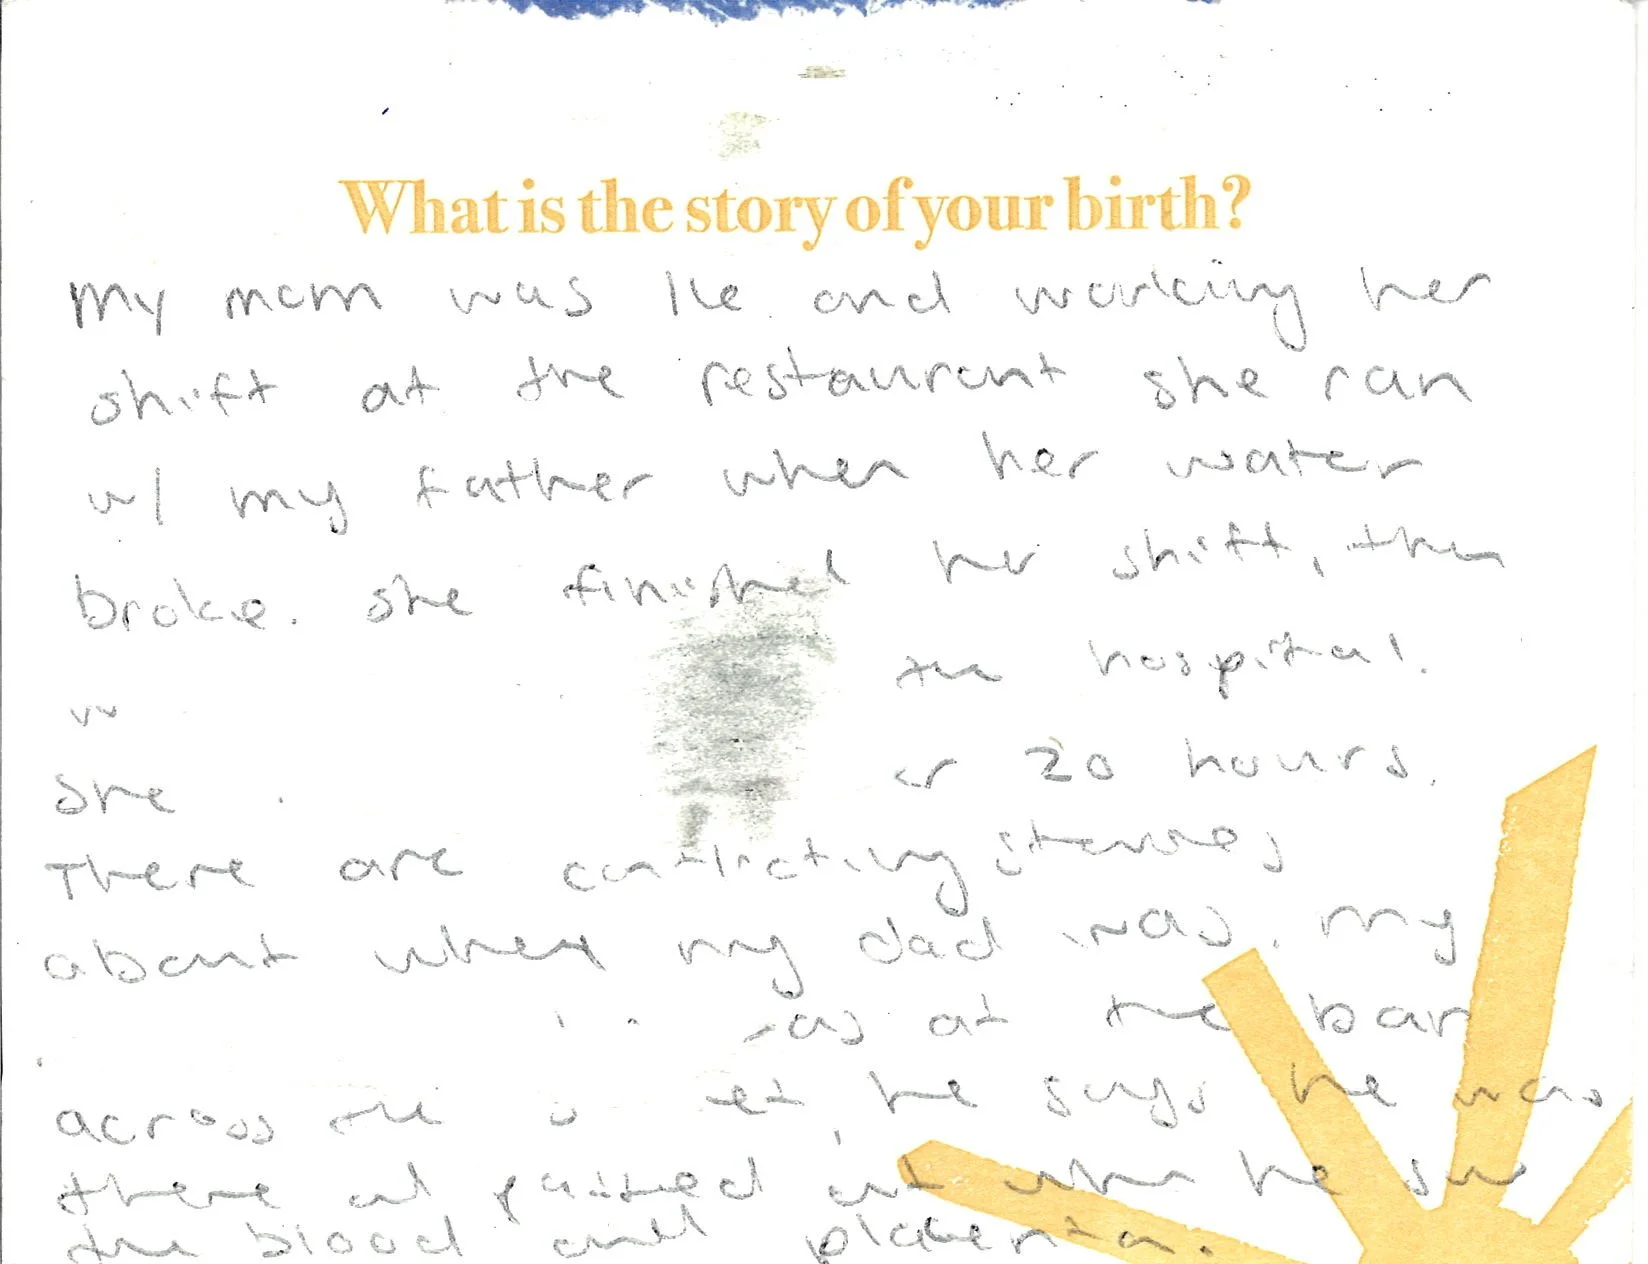 What is the story of your birth?
My mom was and working her
shift at the restaurant she ran
w/ my father when her water
broke. she finished her shift, then
w the hospital.
She 20 hours.
There are conflicting stories
about where my dad was. my
at the bar
across the he says he was
there and passed out when he saw
the blood and placenta.